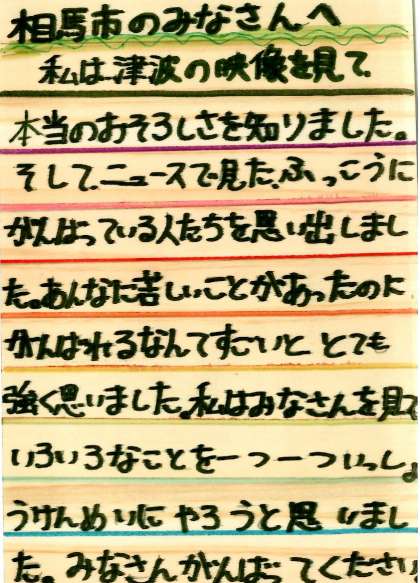 相馬市のみなさんへ
私は津波の映像を見て、
本当のおそろしさを知りました。
そして、ニュースで見た、ふっこうに
がんばっている人たちを思い出しまし
た。あんなに苦しいことがあったのに
がんばれるなんてすごいと とても
強く思いました。私はみなさんを見て
いろいろなことを一つ一ついっしょ
うけんめいに やろうと思 いまし
た。みなさんがんばってください